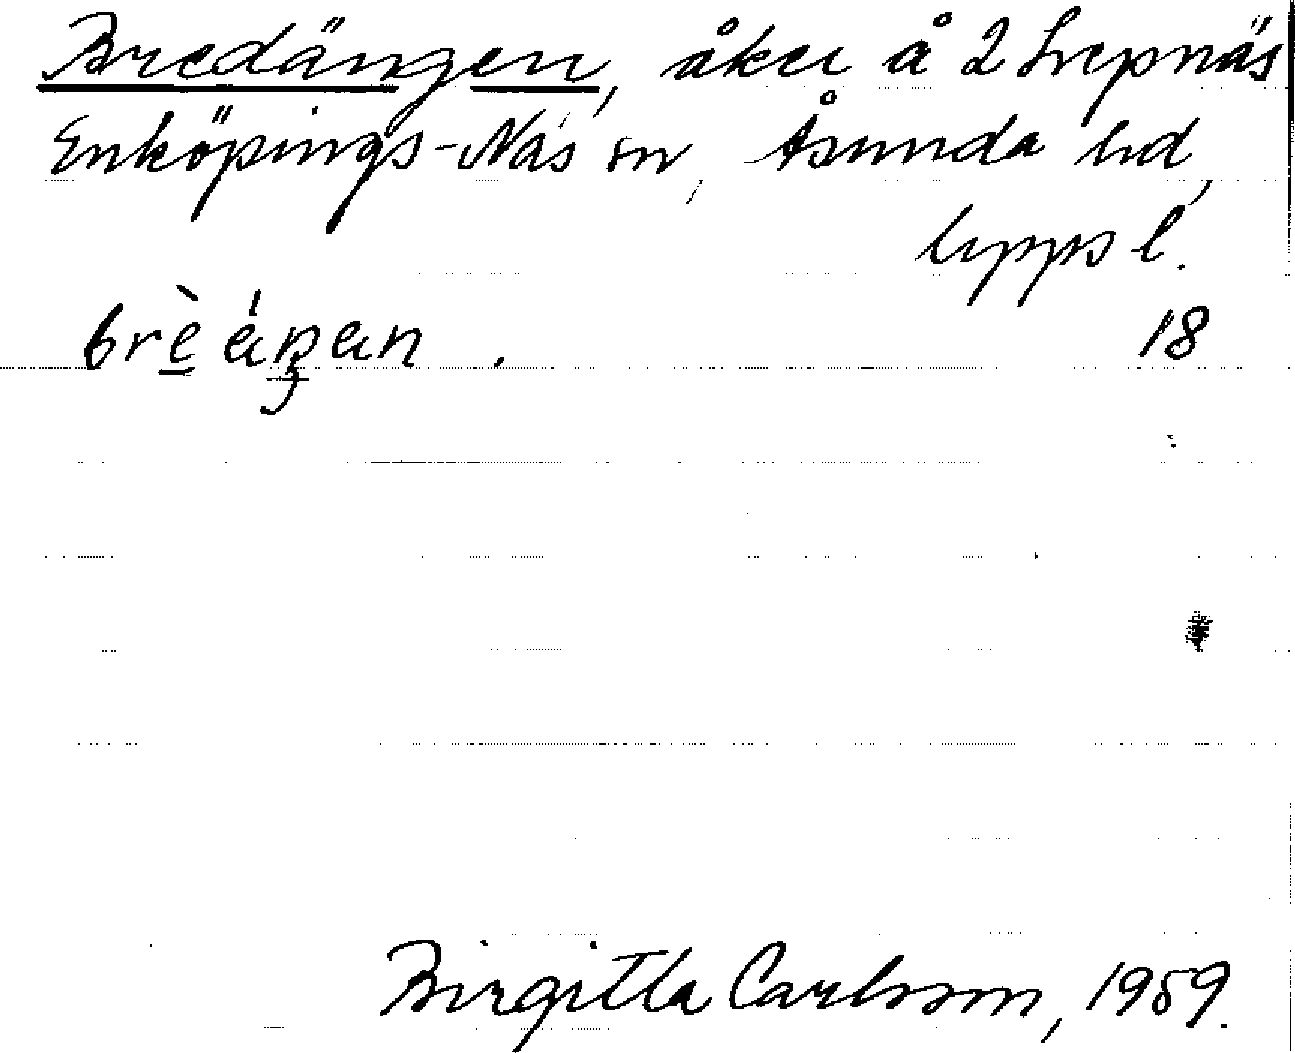 Bredängen, åker å 2 Svepnäs
Enköpings-Näs sn, Åsunda hd,
Upps l.
brè áŋan. 18
Birgitta Carlsson, 1959.